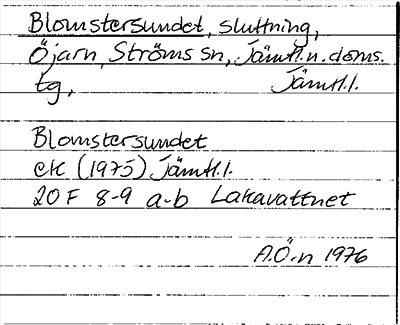 Blomstersundet, sluttning,
Öjarn, Ströms sn, Jämtl.n.doms.
tg, Jämtl.l.
Blomstersundet
ek (1975) Jämtl.l.
20 F 8-9 a-b Lakavattnet
A.Ö-n 1976